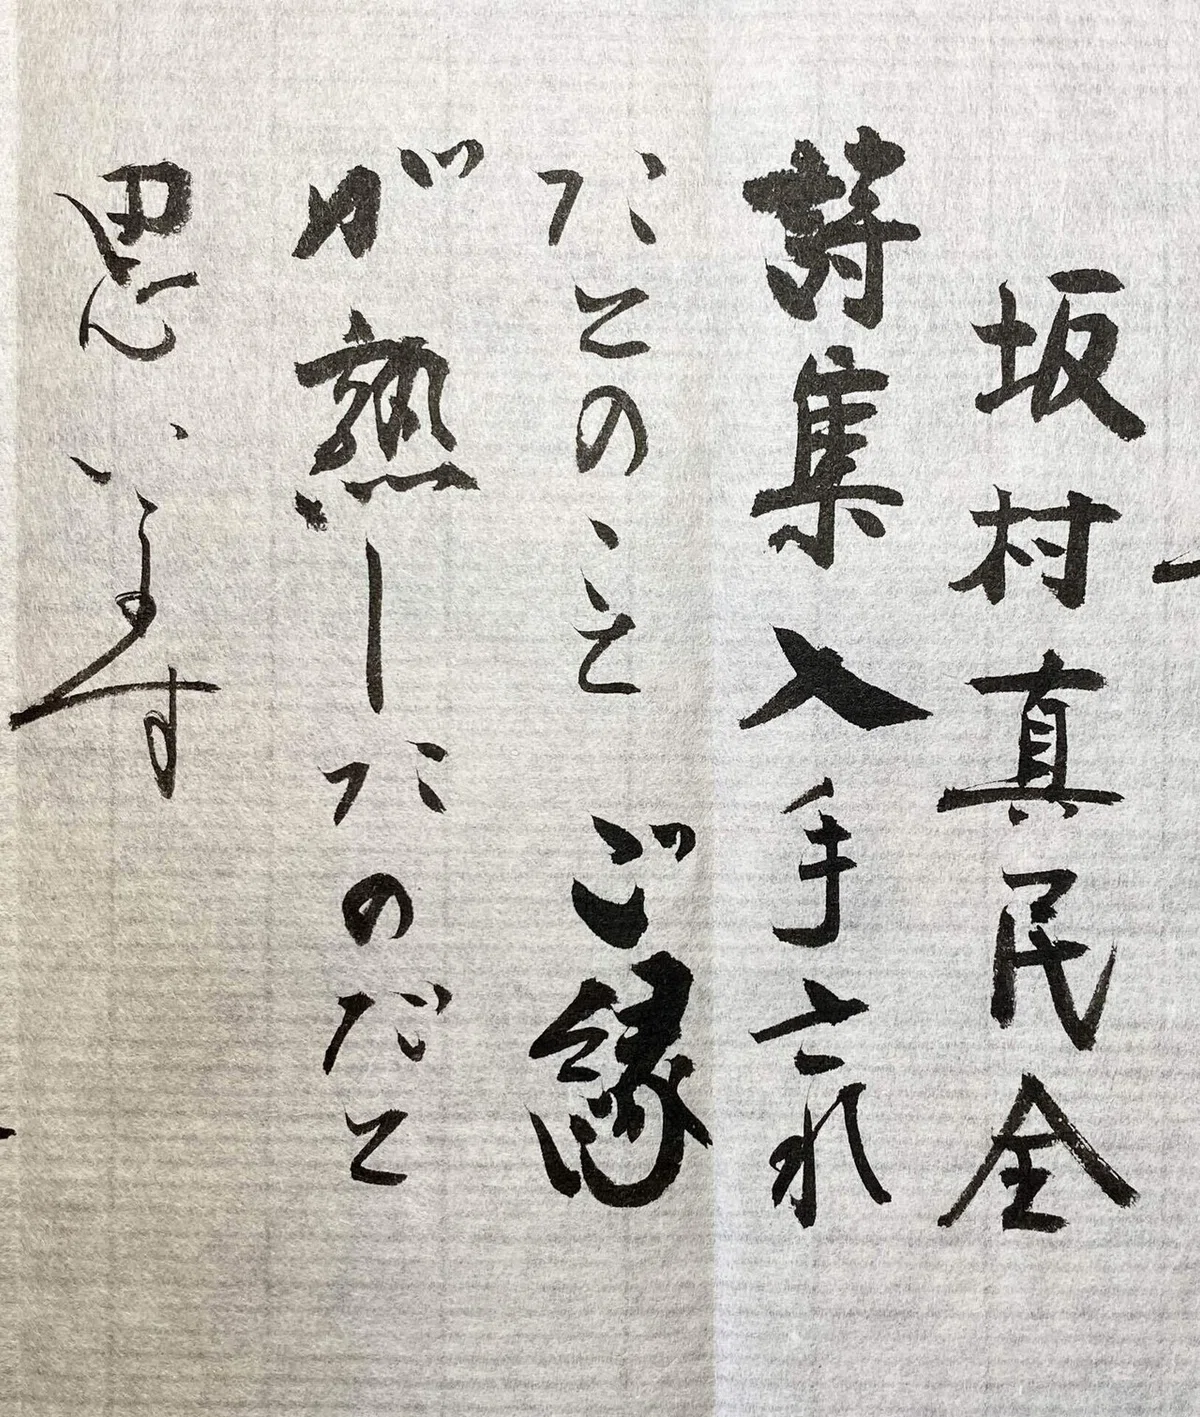 坂村真民全
詩集入手され
たとのこと ご縁
が熟したのだと
思います